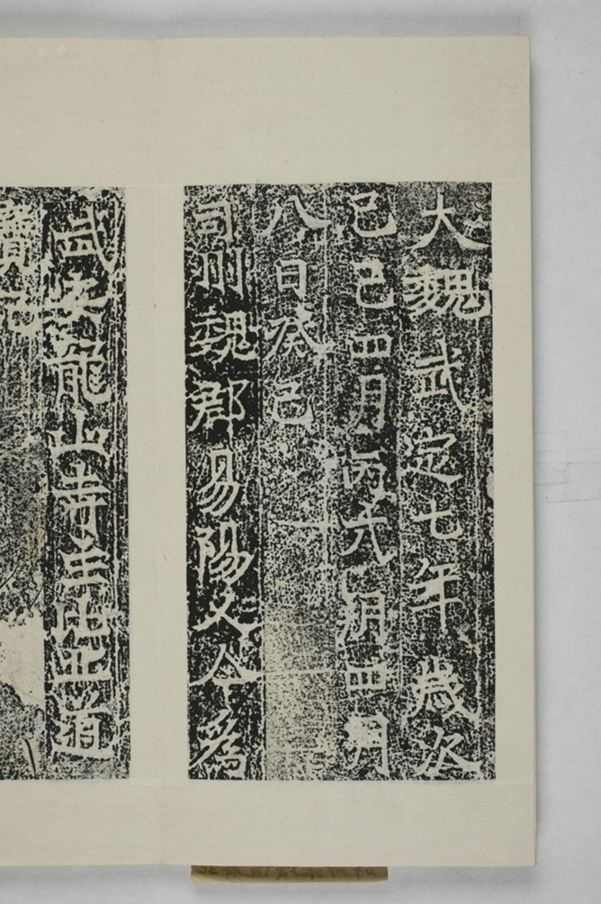 大魏武定七年歲次
己巳四月丙戌朔四月
八日癸巳
司州魏郡易陽又今爲
武安龍山寺主比丘道
寶